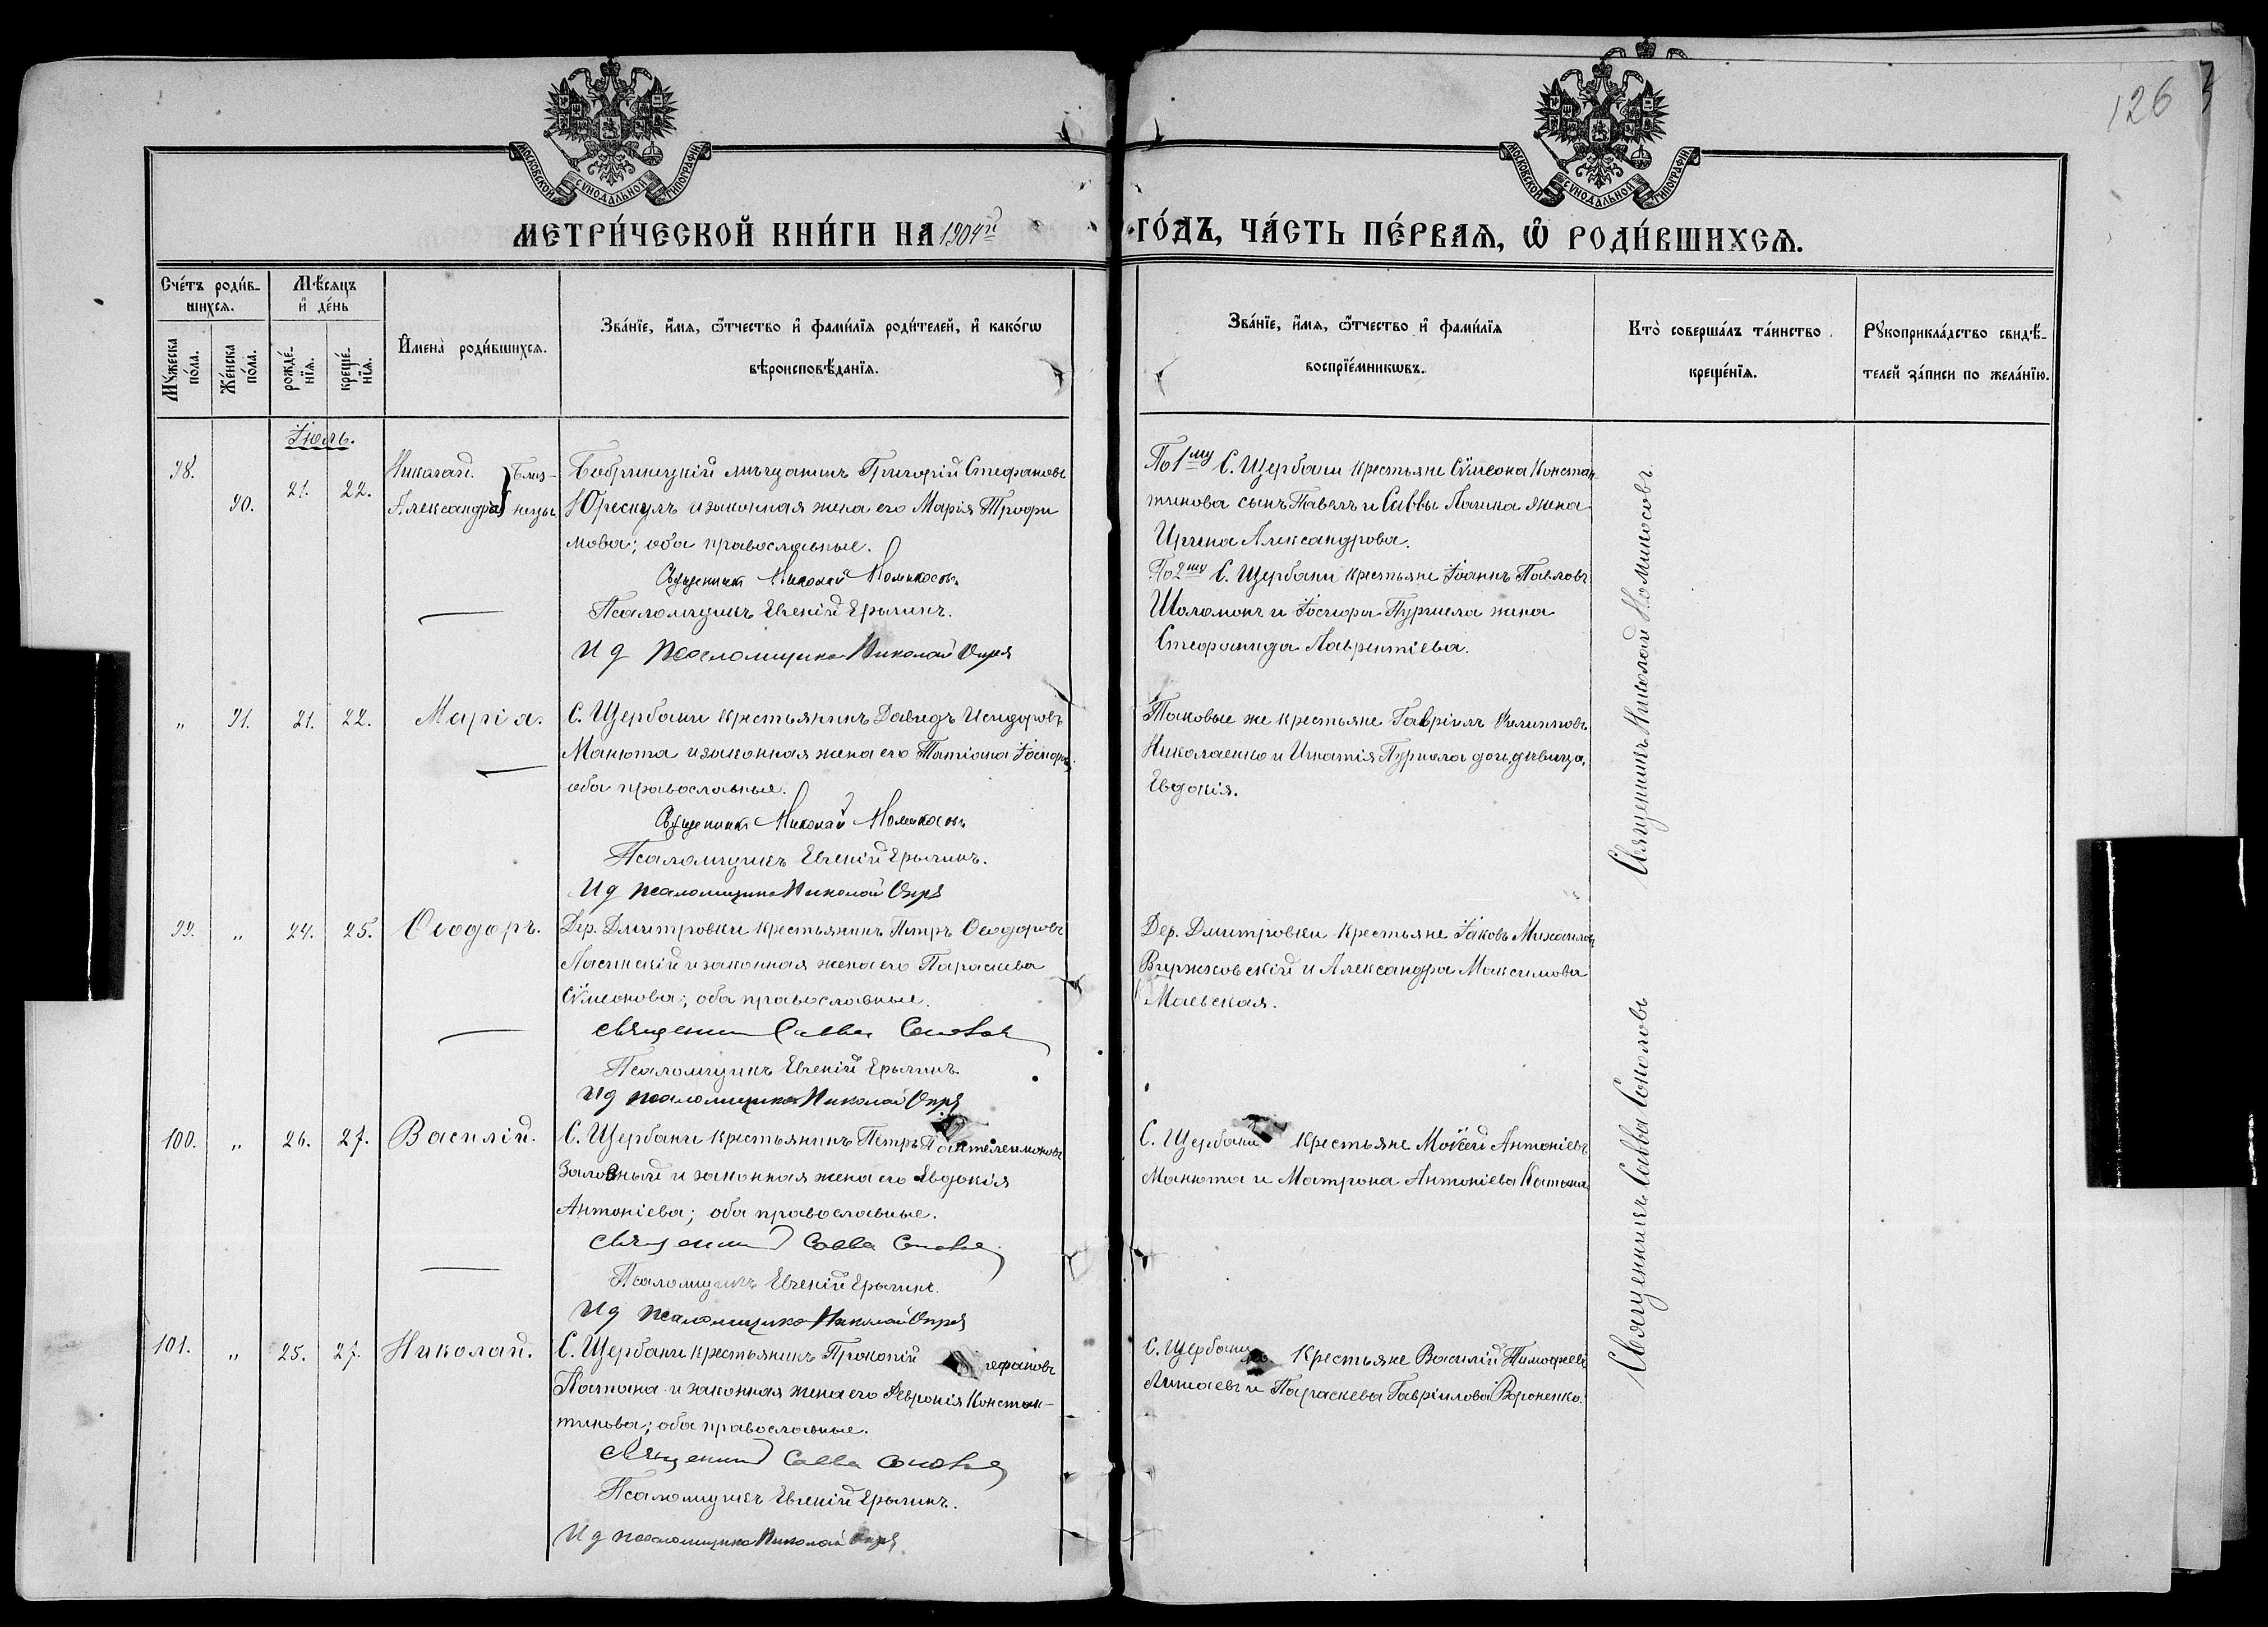 126
МОСКОВСКОЙ СѴНОДАЛЬНОЙ ТИПОГРАФІИ
МОСКОВСКОЙ СѴНОДАЛЬНОЙ ТИПОГРАФІИ
МЕТРИ́ЧЕСКОЙ КНИ́ГИ НА 1904й ГО́ДЪ, ЧА́СТЬ ПЕ́РВАѦ, Ѡ҆ РОДИ́ВШИХСѦ.
Сче́тъ роди́в-
шихсѧ.
Мꙋ́жеска по́ла.
Же́нска по́ла.
Мѣ́сѧцъ
и҆ де́нь
рожде́-
нїѧ.
креще́-
нїѧ.
И҆мена̀ роди́вшихсѧ.
Зва́нїе, и҆́мѧ, ѻ҆́тчество и҆ фами́лїѧ роди́телей, и҆ како́гѡ
вѣроисповѣ́данїѧ.
Зва́нїе, и҆́мѧ, ѻ҆́тчество и҆ фами́лїѧ
воспрїе́мникѡвъ.
Кто̀ соверша́лъ та́инство
креще́нїѧ.
Рꙋкоприкла́дство свидѣ́-
телей за́писи по жела́нїю.
Іюль.
98. 90. 21. 22. Николай. Александра } Близ-
нецы
Бобринецкій мѣщанинъ Григорій Стефановъ
Юрескулъ и законная жена его Марія Трофи
мова; оба православные.
Священникъ Николай Номикосовъ
Псаломщикъ Евгеній Ерылинъ.
И д псаломщика Николай Опря
По 1му С. Щербани крестьяне Сѵмеона Констан-
тинова сынъ Павелъ и Саввы жена
Ирина Александрова.
По 2му С. Щербани крестьяне Іоаннъ Павловъ
Шоломонъ и Іосифа жена
Стефанида Лаврентіева.
" 91. 21. 22. Марія.
С. Щербани крестьянинъ Давидъ Исидоровъ
Манюта и законная жена его Татіана
оба православные.
Священникъ Николай Номикосовъ
Псаломщикъ Евгеній Ерылинъ.
И д псаломщика Николай Опря
Таковые же крестьяне Гавріилъ Филипповъ
Николаенко и Игнатія дочь дѣвица
Евдокія.
Священникъ Николай Номикосовъ
99. " 24. 25. Ѳеодоръ.
Дер. Дмитровки крестьянинъ Петръ Ѳеодоровъ
Ласинскій и законная жена его Параскева
Сѵмеонова; оба православные.
священникъ Савва Соколовъ
Псаломщикъ Евгеній Ерылинъ.
И д псаломщика Николай Опря
Дер. Дмитровки крестьяне Іаковъ Михаиловъ
Виржховскій и Александра Максимова
Маевская.
100. " 26. 27. Василій.
С. Щербани крестьянинъ Петръ Пантелеимоновъ
Заловный и законная жена его Евдокія
Антоніева; оба православные.
священникъ Савва Соколовъ
Псаломщикъ Евгеній Ерылинъ.
И д псаломщика Николай Опря
С. Щербани крестьяне Моѵсей Антоніевъ
Манюта и Матрона Антоніева Катана
101. " 25. 27. Николай.
С. Щербани крестьянинъ Прокопій
Катана и законная жена его Февронія Констан-
тинова; оба православные.
священникъ Савва Соколовъ
Псаломщикъ Евгеній Ерылинъ.
И д псаломщика Николай Опря
С. Щербани крестьяне Василій Тимофеевъ
и Параскева Гавріилова Вороненко.
Священникъ Савва Соколовъ